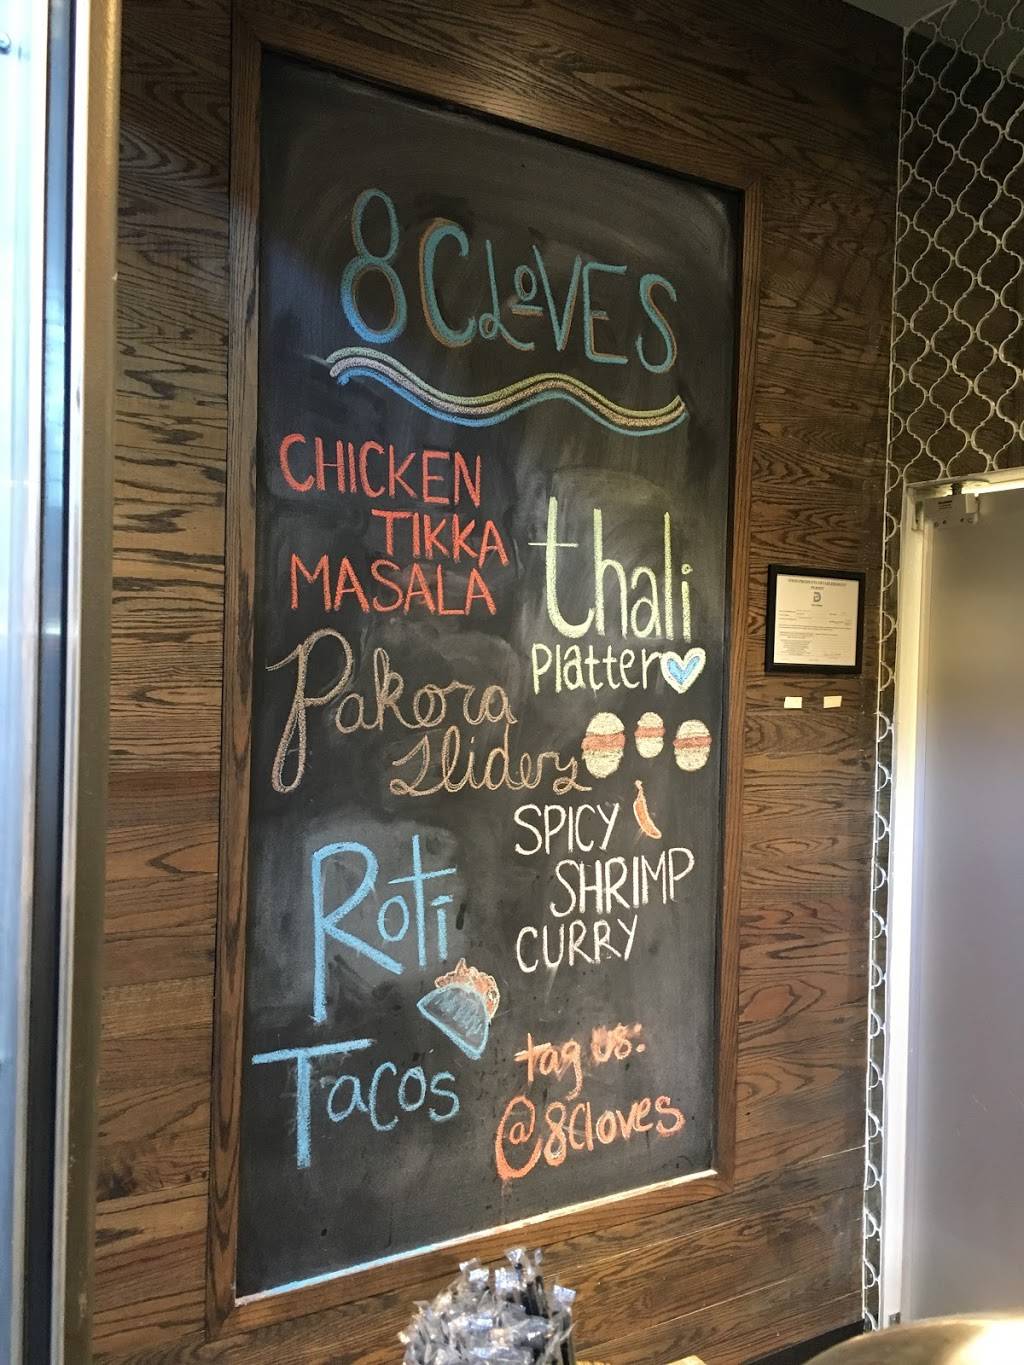 8 CLoVES
CHICKEN
TIKKA
MASALA
thali
Platter
Pakora
Sliders
SPICY
SHRIMP
CURRY
Roti
Tacos
tag us:
@8Cloves